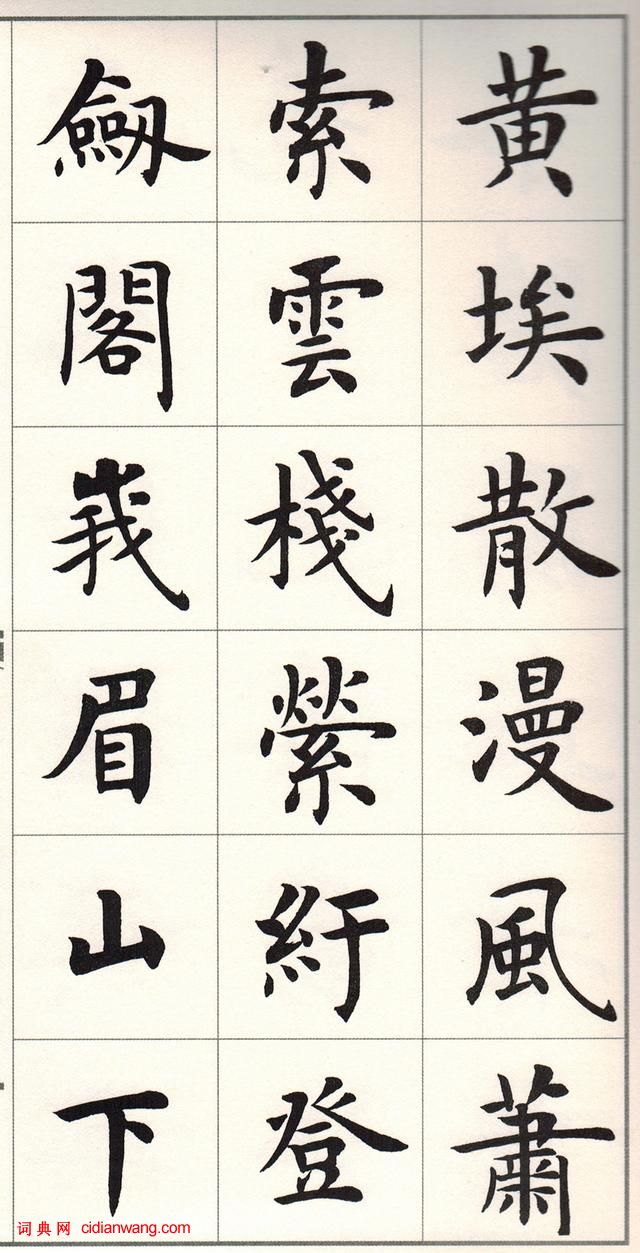 黄埃散漫風蕭
索雲棧縈紆登
劔閣峩眉山下
词典网 cidianwang.com